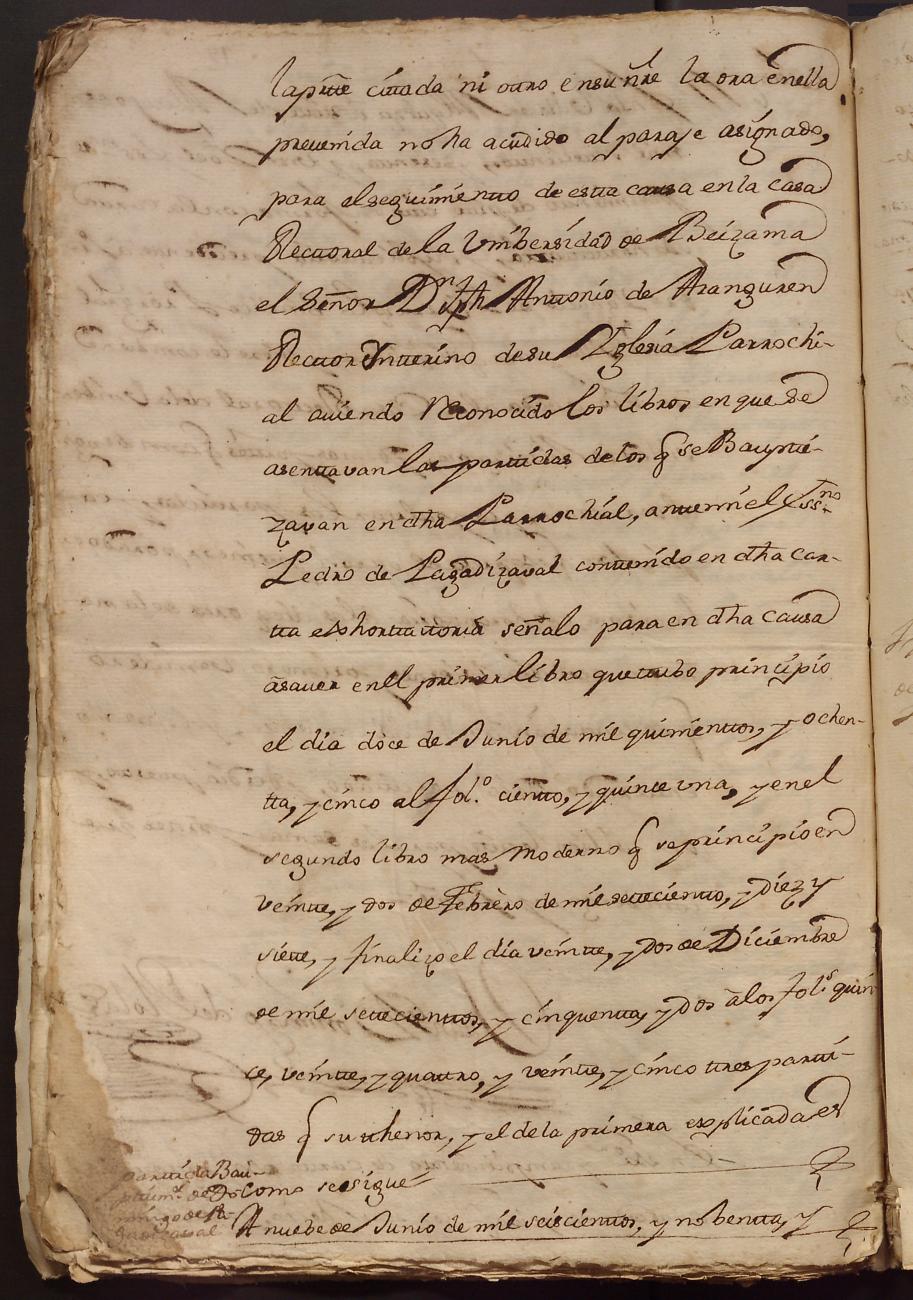 la ptte cittada ni otro en su ñre la ora en ella
prevenida no ha acudido al paraje asignado,
para el seguimientto de estta causa en la casa
Rectoral de la Vnibersidad de Beizama
el Señor Dn Jph Anttonio de Aranguren
Rector Ynterino de su Yglesia Parrochi-
al aviendo reconocido los libros en que se
asenttavan las parttidas de los q se Bauptti-
zavan en dha Parrochial, antte mi el Essno
Pedro de Lagadizaval conttenido en dha car-
tta exhorttattoria señalo para en dha causa
a saver en el primer libro que tubo principio
el dia doce de Junio de mil quinienttos, y ochen-
tta, y cinco al fol.º cientto, y quince una, y en el
segundo libro mas moderno q se principio en
veintte, y dos de Febrero de mil settecientto, y diez y
siette, y finalizo el dia veintte, y dos de Diciembre
de mil settecienttos, y cinquentta, y dos a los fol.s quin
ce, veintte, y quattro, y veintte, y cinco ttres partti-
das q su thenor, y el de la primera explicada es
Como se sigue
parttida Bau-
ptism.l de Do
mingo de La-
gadizaval
A nuebe de Junio de mil seiscienttos, y nobentta, y